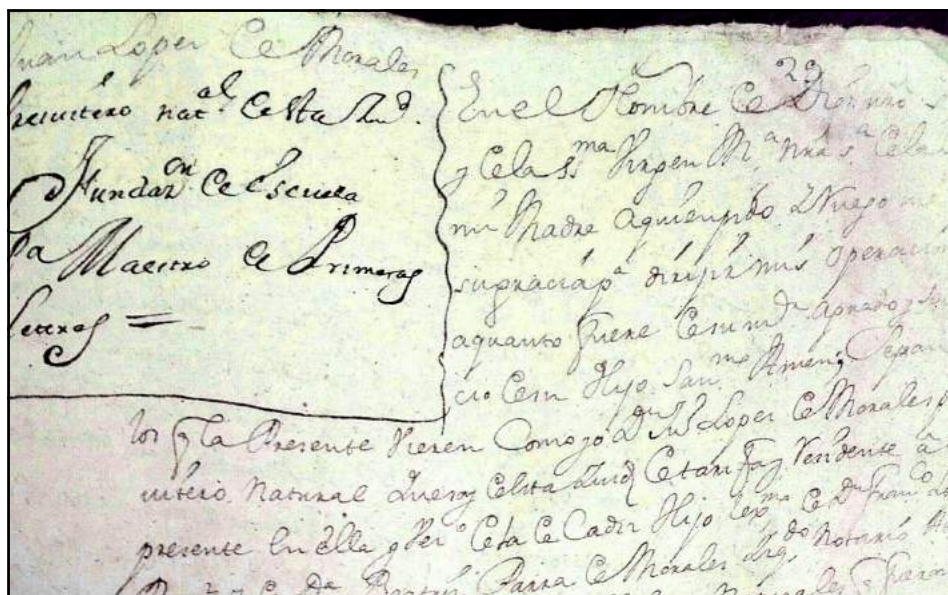 Juan Lopez de Morales
Presvitero nat.al desta Ziud.
Fundazon de Escuela
Pa Maestro de Primeras
Letras =
29
En el Nombre de Dios nro
y de la SSma Virgen Ma nra Sa de la
mi Madre a quien pido y Ruego
su gracia pa dirijir mis operacio
a quanto fuere de su md agrado y
cio de su Hijo San.mo Amen; Sepan
los q la Presente Vieren Como yo Dn Jun Lopez de Morales p
vitero Natural que soy desta Ziud de Tarifa, Residente a
presente en ella y Vezo desta de Cadiz Hijo lexmo de Dn Franco
Da Parra de Morales Notario